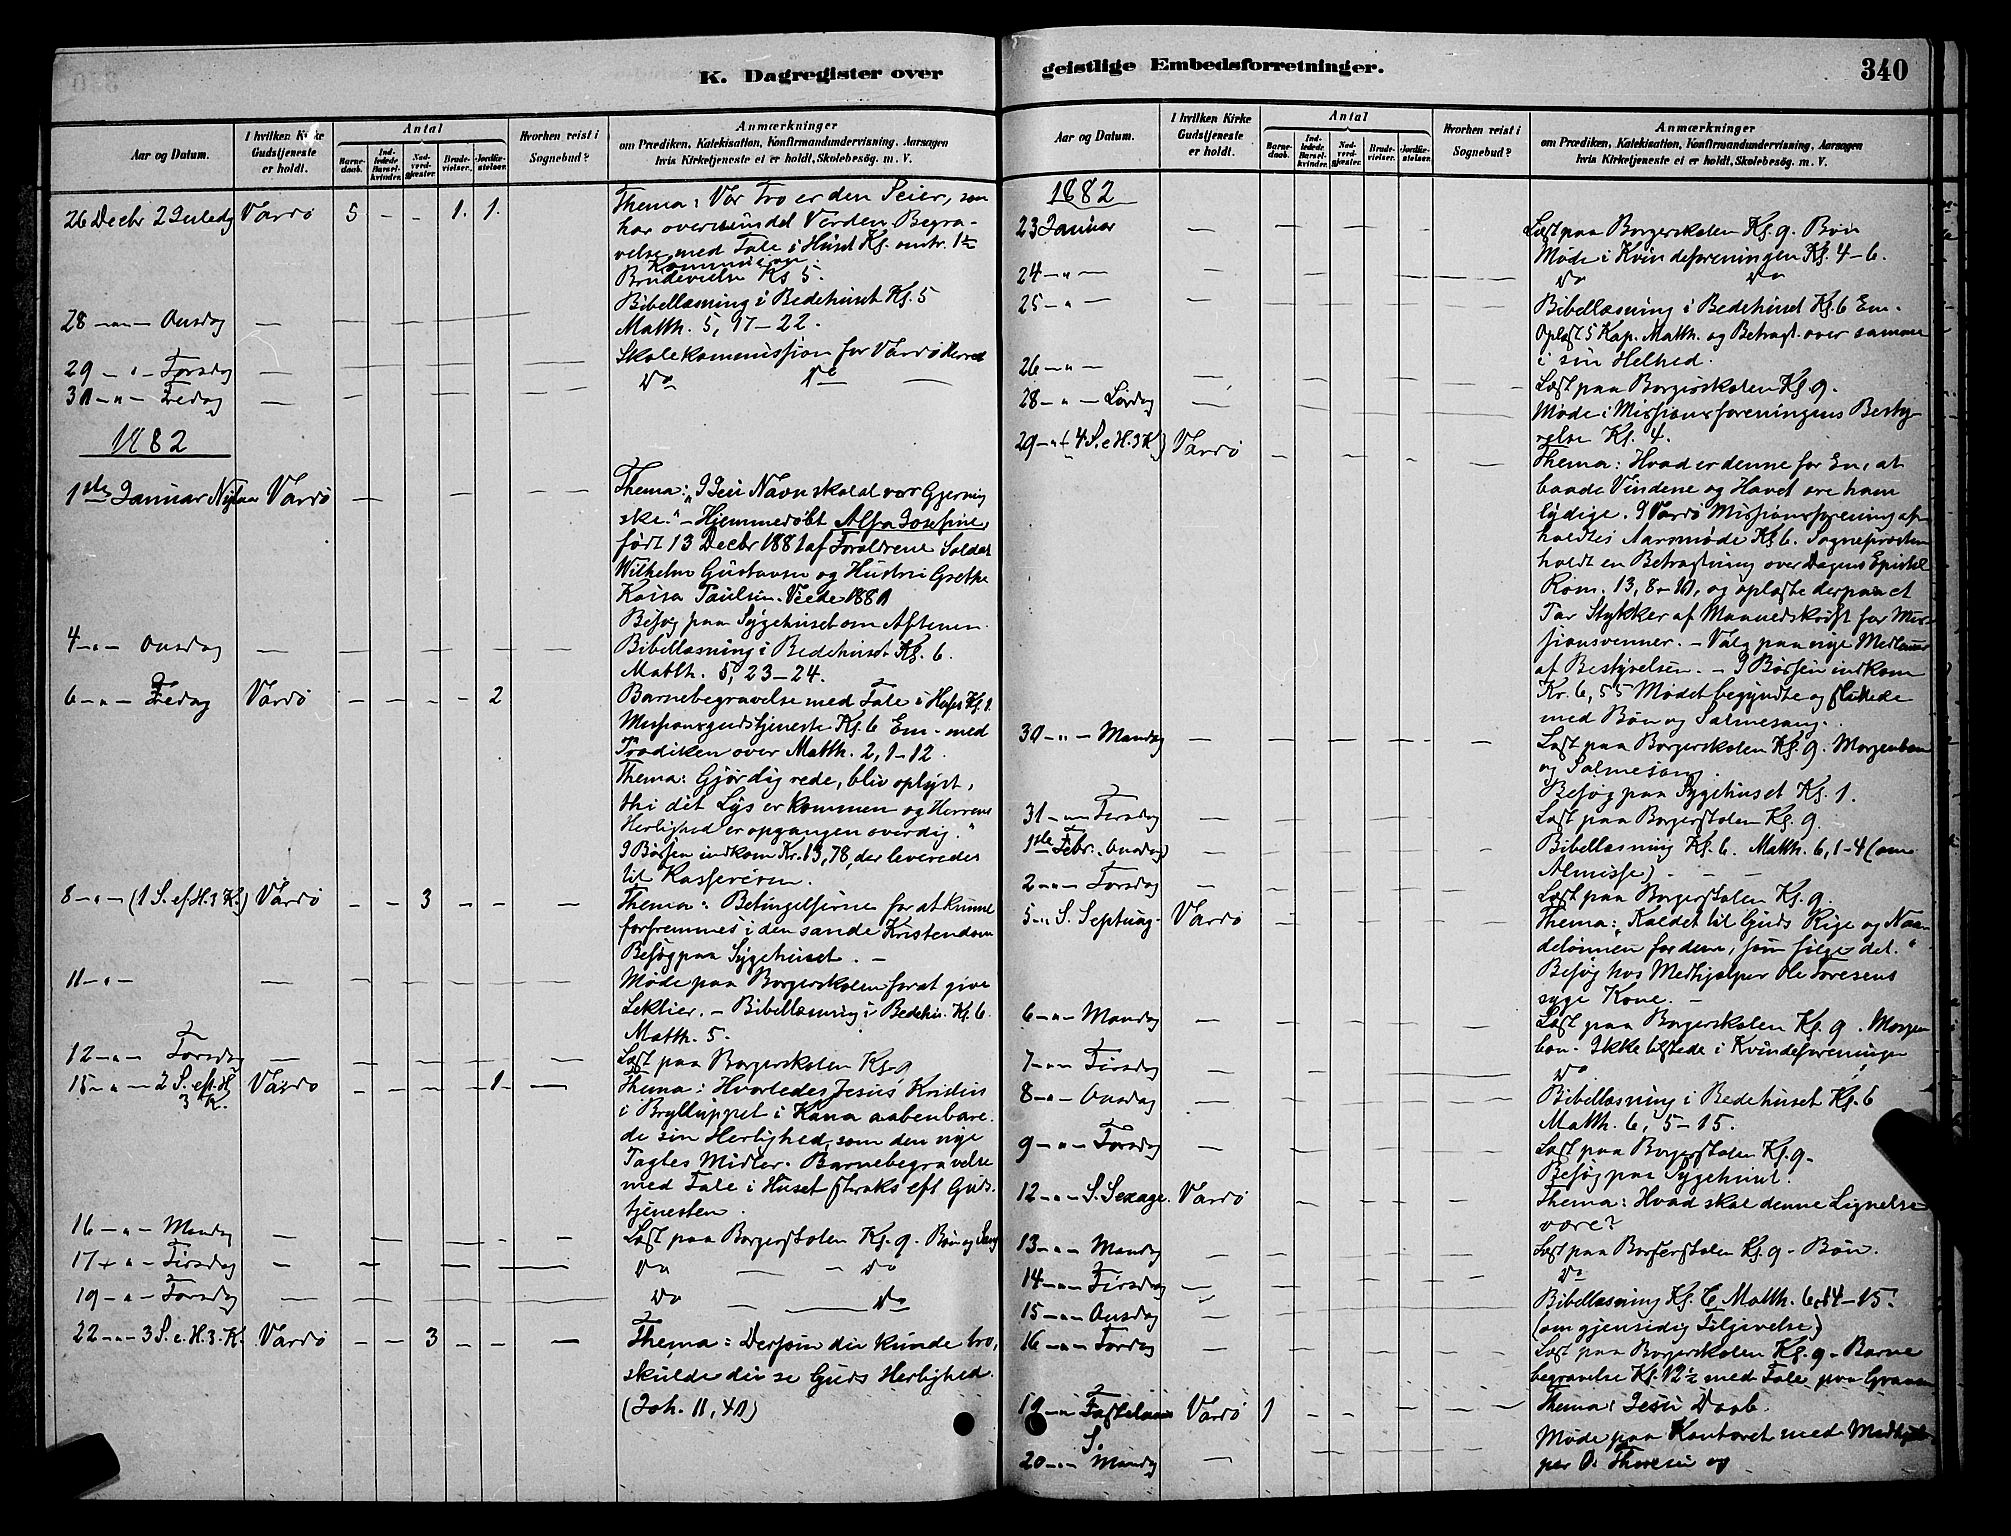 K. Dagregister over
Aar og Datum.
I hvilken Kirke Gudstjeneste er holdt.
Antal
Barnedaab.
Indledede Barselkvinder.
Nadverdgjæster.
Brudevielser.
Jordfæstelser.
Hvorhen reist i Sognebud?
Anmærkninger
om Prædiken, Katekisation, Konfirmandundervisning, Aarsagen
hvis Kirketjeneste ei er holdt, Skolebesøg. m. V.
26 Decbr 2 Juledg Vardø 5 – – 1. 1. Thema: Vor Tro er den Seier, som
har overvundet Verden. Begra-
velse med Tale i Huset Kl. omtr. 1
Kommunion
Brudevielse Kl 5.
Bibellæsning i Bedehuset Kl. 5
28 – " – Onsdag Matth. 5, 17–22.
Skolekommission for Vardø Herred
29 – " – Torsdag Do Do
30 – " – Fredag
1882
1ste Januar Nytaar Vardø Thema: "I Jesu Navn skal al vor Gjerning
ske." – Hjemmedøbt Alfa Josefine,
født 13 Decbr 1881 af Forældrene Soldat
Wilhelm Gustavsen og Hustru Grethe
Kaisa Paulsen. Viede 1881
Besøg paa Sygehuset om Aftenen.
4 – " – Onsdag Bibellæsning i Bedehuset Kl. 6.
Matth. 5, 23–24.
6 – " – Fredag Vardø – – – – 2 Barnebegravelse med Tale i Huset Kl. 1.
Missionsgudstjeneste Kl. 6 Em. med
Prædiken over Matth. 2, 1–12.
Thema: Gjør dig rede, bliv oplyst,
thi dit Lys er kommen og Herrens
Herlighed er opgangen over dig."
I Bøssen indkom Kr. 13,78, der leveredes
til Kassereren.
8 – " – (1 S. ef H. 3 K.) Vardø – – 3 – – – Thema: Betingelserne for at kunne
forfremmes i den sande Kristendom
Besøg paa Sygehuset. –
11 – " – Møde paa Borgerskolen for at give
Lektier. – Bibellæsning i Bedehu. Kl. 6.
Matth. 5.
12 – " – Torsdag Læst paa Borgerskolen Kl. 9
15 – " – 2 S. eft. H. Vardø 1 Thema: Hvorledes Jesus Kristus
3 K. i Brylluppet i Kana aabenbare-
de sin Herlighed, som den nye
Pagtes Midler. Barnebegravelse
med Tale i Huset straks eft Guds-
tjenesten.
16 – " – Mandag Læst paa Borgerskolen Kl. 9. Bøn og Sang
17 – " – Tirsdag Do Do
19 – " – Torsdag Do Do
22 – " – 3 S. e. H. 3. K. Vardø – – 3 – – – Thema: Dersom du kunde tro,
skulde du se Guds Herlighed.
(Joh. 11, 40)
geistlige Embedsforretninger.
340
Aar og Datum.
I hvilken Kirke Gudstjeneste er holdt.
Antal
Barnedaab.
Indledede Barselkvinder.
Nadverdgjæster.
Brudevielser.
Jordfæstelser.
Hvorhen reist i Sognebud?
Anmærkninger
om Prædiken, Katekisation, Konfirmandundervisning, Aarsagen
hvis Kirketjeneste ei er holdt, Skolebesøg. m. V.
1882
23 Januar Læst paa Borgerskolen Kl. 9. Bøn
Møde i Kvindeforeningen Kl. 4–6.
24 – " – Do Do
25 – " – Bibellæsning i Bedehuset Kl. 6 Em.
Oplæst 5 Kap. Matth. og Betragt. over samme
i sin Helhed.
26 – " – Læst paa Borgerskolen Kl. 9.
28 – " – Lørdag Møde i Missionsforeningens Besty-
relse Kl. 4.
29 – " (4 S. e H. 3 K) Vardø Thema: Hvad er denne for En, at
baade Vindene og Havet ere ham
lydige. I Vardø Missionsforening af-
holdtes Aarsmøde Kl 6. Sognepræsten
holdt en Betragtning over Dagens Epistel
Rom. 13, 8–10, og oplæste derpaa et
Par Stykker af Maanedskrift for Mis-
sionsvenner. – Valg paa nye Medlemmer
af Bestyrelsen. – I Bøssen indkom
Kr. 6,55 Mødet begyndte og sluttede
med Bøn og Salmesang.
30 – " – Mandag Læst paa Borgerskolen Kl. 9. Morgenbøn
og Salmesang.
Besøg paa Sygehuset Kl. 1.
31 – " – Tirsdag Læst paa Borgerskolen Kl. 9
1ste Febr. Onsdag Bibellæsning Kl. 6. Matth. 6, 1–4 (om
Almisse).
2 – " – Torsdag Læst paa Borgerskolen Kl. 9.
5 – " S. Septuag. Vardø Thema: "Kaldet til Guds Rige og Naa-
delønnen for dem, som følge det."
Besøg hos Medhjælper Ole Toresens
syge Kone. –
6 – " – Mandag Læst paa Borgerskolen Kl. 9. Morgen
bøn. Ikke tilstede i Kvindeforeningen
7 – " – Tirsdag Do
8 – " – Onsdag Bibellæsning i Bedehuset Kl. 6
Matth. 6, 5–15.
9 – " – Torsdag Læst paa Borgerskolen Kl. 9.
Besøg paa Sygehuset.
12 – " – S. Sexage. Vardø Thema: Hvad skal denne Lignelse
være?
13 – " – Mandag Læst paa Borgerskolen Kl. 9. Bøn.
14 – " – Tirsdag Do
15 – " – Onsdag Bibellæsning Kl. 6. Matth. 6, 14–15.
(om gjensidig Tilgivelse)
16 – " – Torsdag Læst paa Borgerskolen Kl. 9. Barne
begravelse Kl. 12½ med Tale paa Graven
19 – " Fastelavns Vardø 1 Thema: Jesu Daab.
S. Møde paa Kontoret med Medhjæl-
20 – " – Mandag per O. Thoresen og